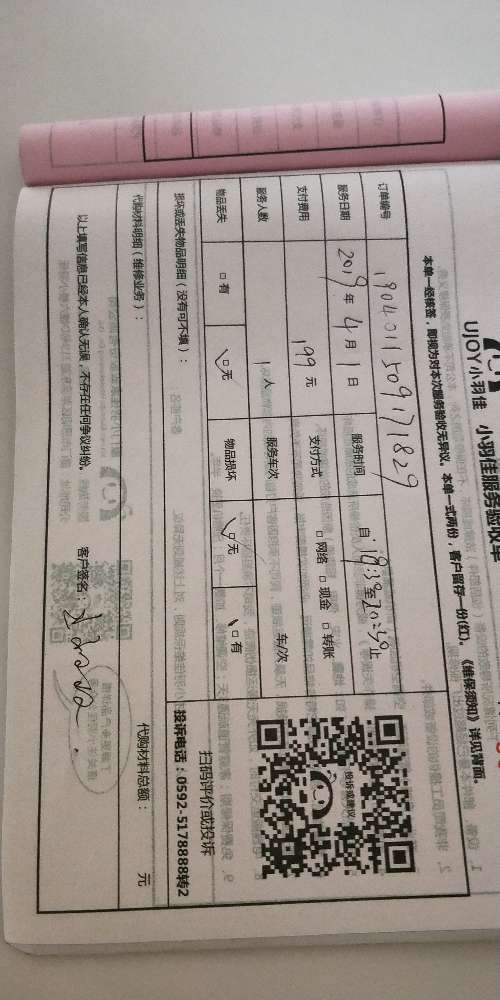 UJOY小羽佳 小羽佳服务验收单
本单一经核签，即视为对本次服务验收无异议。本单一式两份，客户留存一份(红)。《维保须知》详见背面。
订单编号 1904011509171829
服务日期 2019年4月1日 服务时间 自：18:30至20:50止
支付费用 199元 支付方式 □网络 □现金 □转账
服务人数 1人 服务车次 车/次
物品丢失 □有 □无 物品损坏 □无 □有
扫码评价或投诉
投诉或建议
损坏或丢失物品明细（没有可不填）：
投诉电话：0592-5178888转2
代购材料明细（维修业务）：
代购材料总额： 元
以上填写信息已经本人确认无误，不存在任何争议纠纷。 客户签名：